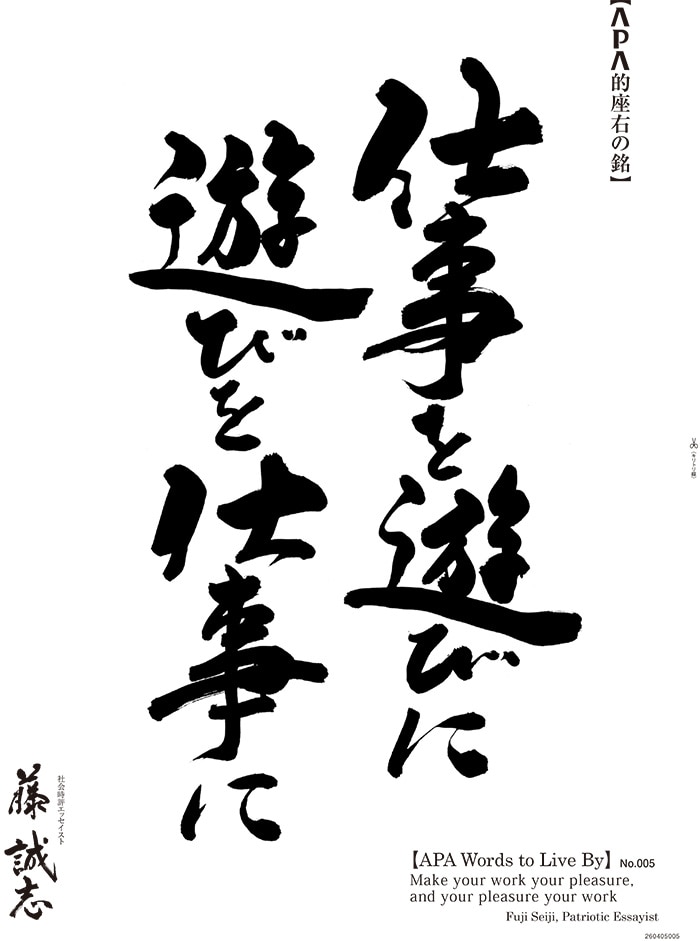 【APA的座右の銘】
仕事を遊びに
遊びを仕事に
社会時評エッセイスト
藤 誠志
(キリトリ線)
【APA Words to Live By】 No.005
Make your work your pleasure,
and your pleasure your work
Fuji Seiji, Patriotic Essayist
260405005